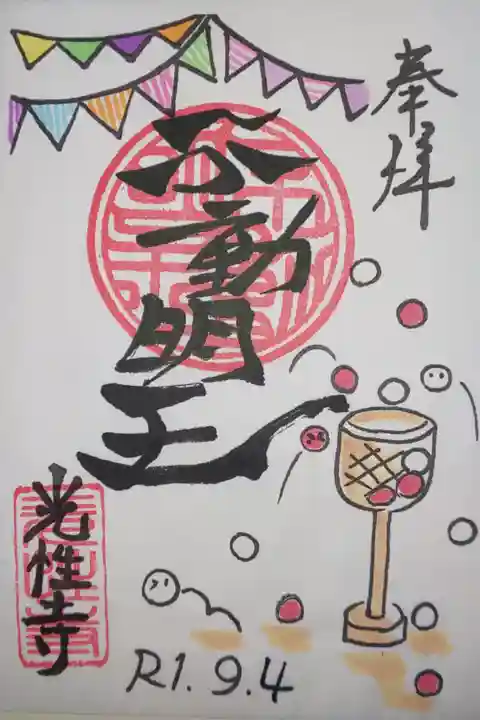 奉拝
不動明王
光性寺
R1.9.4